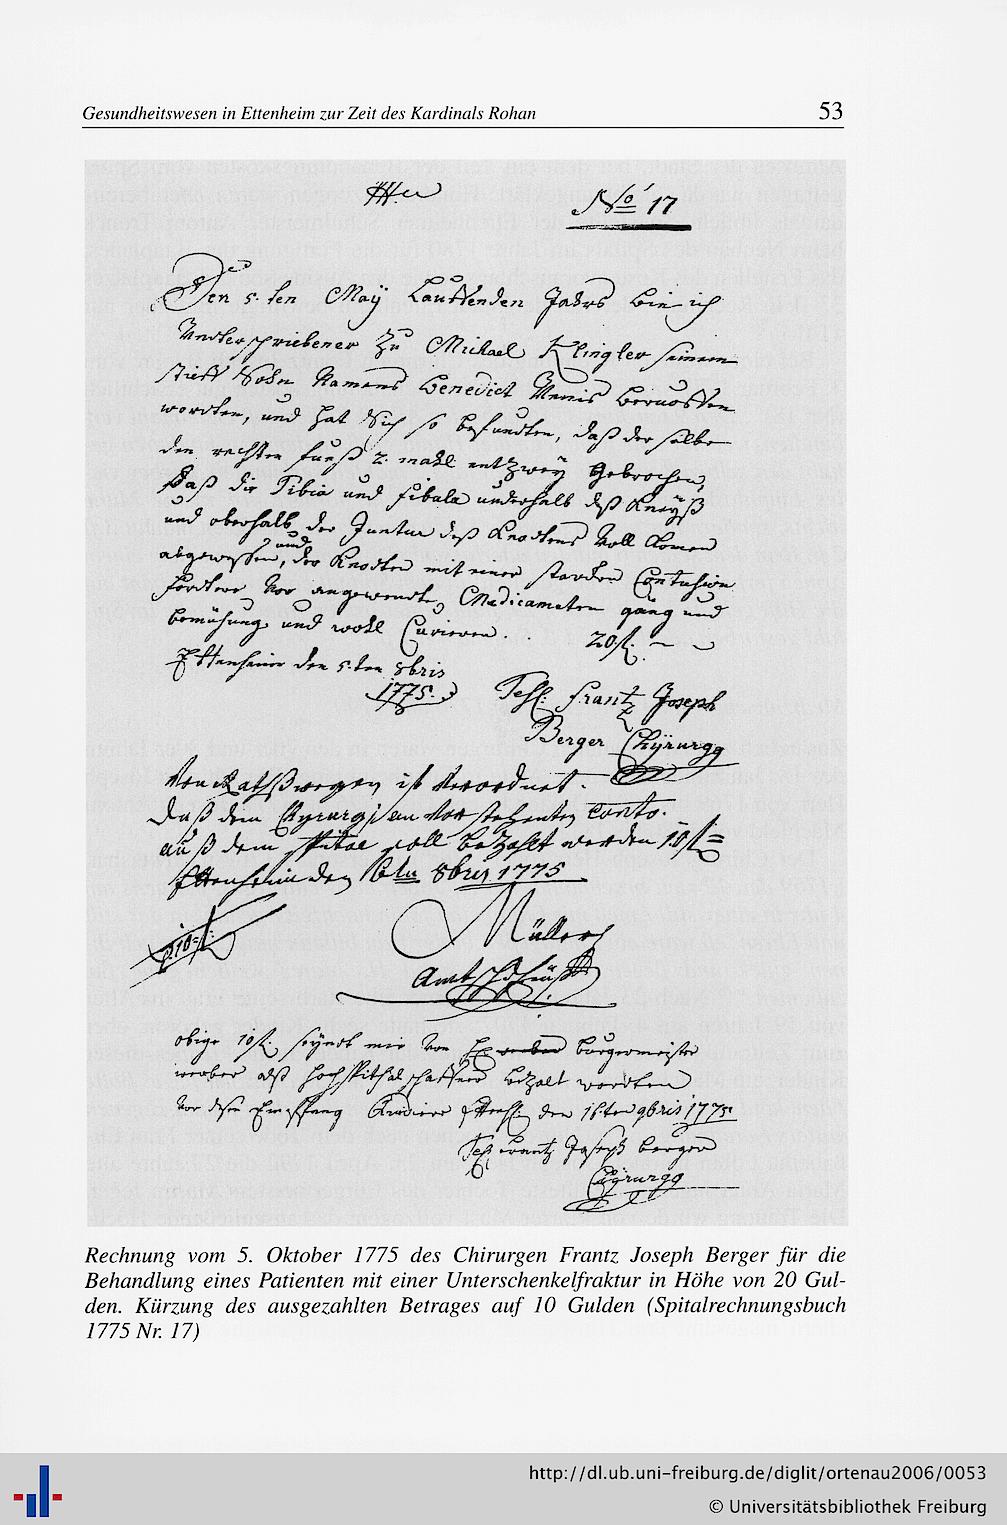 Gesundheitswesen in Ettenheim zur Zeit des Kardinals Rohan
53
No 17
Den 5. ten May Lauffenden Jahrs bin ich
Underschriebener zu Michael Klingler seinem
stieff Sohn Namens Benedict beruoffen
wordten, und hat Sich so befundten, daß der selbe
den rechten fueß 2. mahl entzwey Gebrochen,
daß die Tibia und fibula underhalb deß Kneyß
und oberhalb der Juntur deß Knodtens Voll komen
abgewessen, und der Knodten mit einer starcken Contusion
Vor angewendte Medicamenten gäng und
bemühung und wohl Curieren. . 20 fl.
Ettenheim den 5. ten 8bris
1775.
Frantz Joseph
Berger Chyrurgg
Von Rathßwegen ist Verordnet.
Daß dem Chyrurg Vor stehenten Conto.
auß dem spital soll bezahlt werden 10 fl =
Ettenheim den 8bris 1775
10 fl.
Müller
obige 10 fl. seyndt mir Von H: burgermeister
werber alß spithal schaffner bezalt wordten
Vor dessen Empffang den 9bris 1775
Frantz Joseph berger
Chyrurgg
Rechnung vom 5. Oktober 1775 des Chirurgen Frantz Joseph Berger für die
Behandlung eines Patienten mit einer Unterschenkelfraktur in Höhe von 20 Gul-
den. Kürzung des ausgezahlten Betrages auf 10 Gulden (Spitalrechnungsbuch
1775 Nr. 17)
http://dl.ub.uni-freiburg.de/diglit/ortenau2006/0053
© Universitätsbibliothek Freiburg